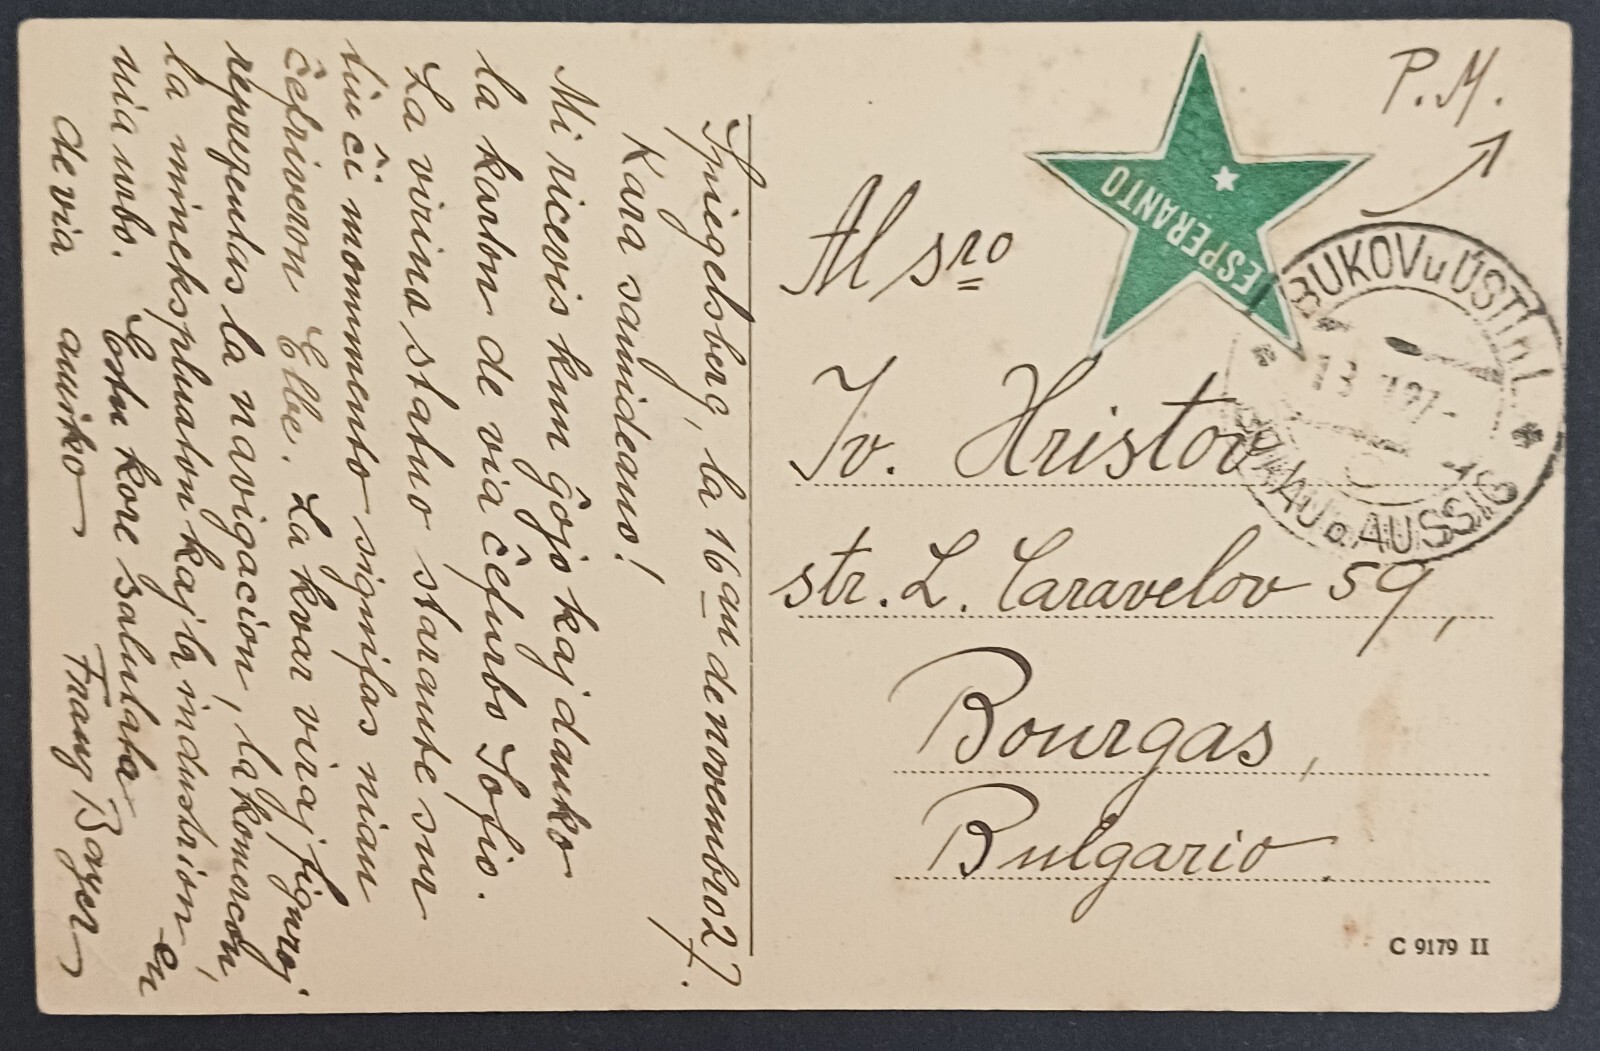 Spiegelsberg, la 16an de novembro 27.
Kara samideano!
Mi ricevis kun ĝojo kaj danko
la karton de via ĉefurbo Sofio.
La virina statuo staranta sur
tiu ĉi monumento signifas nian
ĉefriveron Elbe. La kvar viraj figuroj
reprezentas la navigacion, la komercon,
la minekspluaton kaj la industrion en
nia urbo. Estu kore salutata
de via amiko Franz Bayer
P.M.
ESPERANTO
Al sro
Iv. Hristov
str. L. Caravelov 59,
Bourgas,
Bulgario.
BUKOV u ÚSTÍ n. L.
AUSSIG
C 9179 II